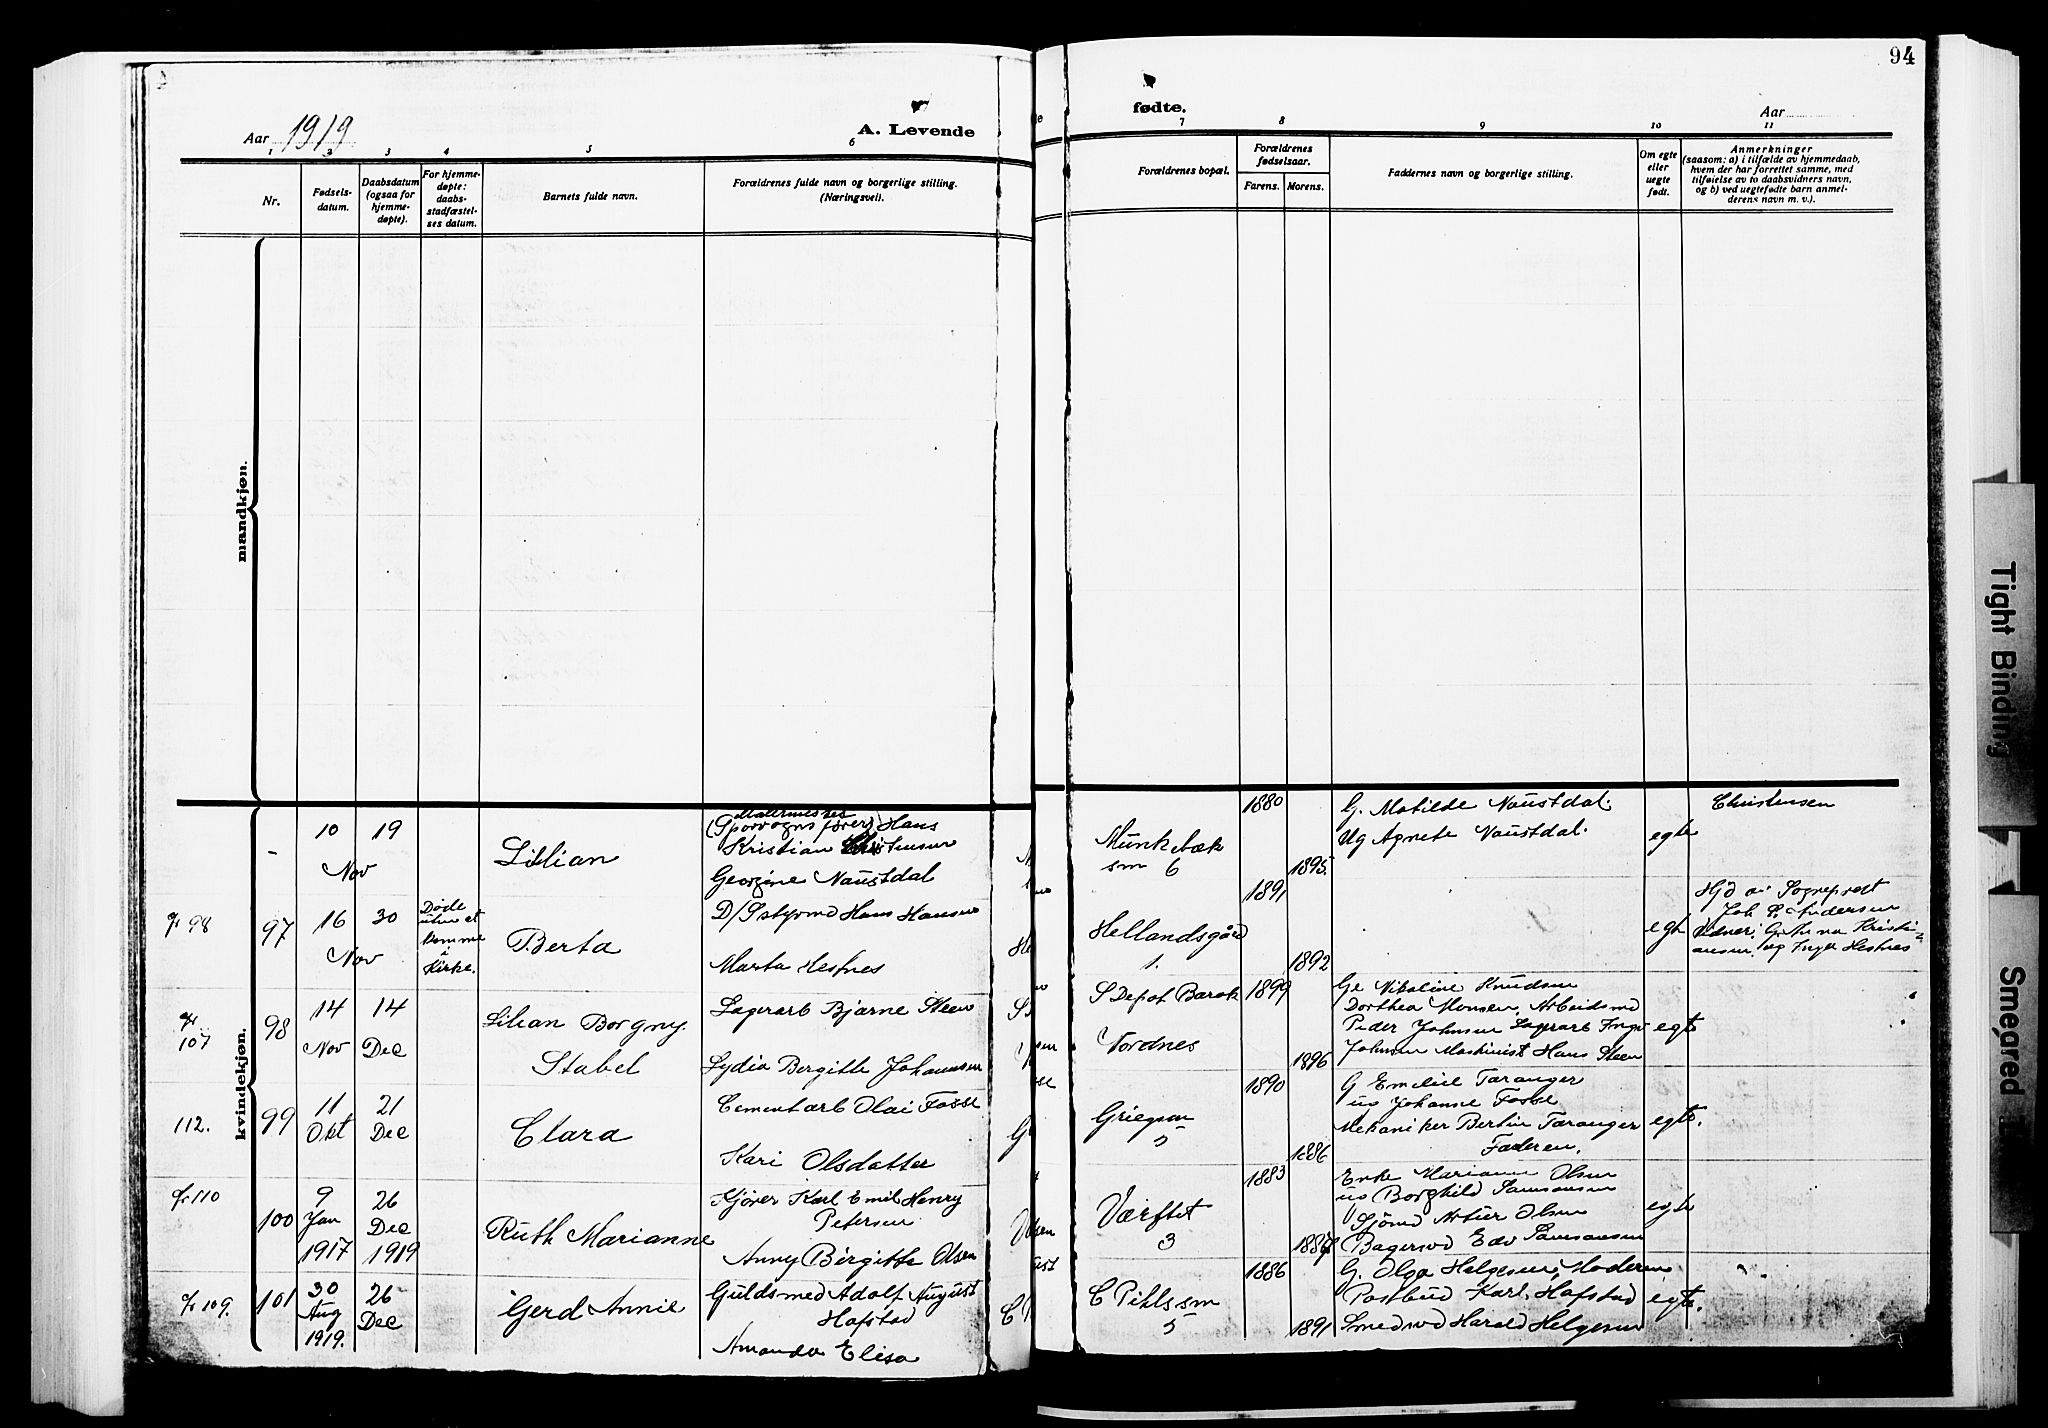 94
Aar 1919
A. Levende
fødte.
Aar
1 2 3 4 5 6 7 8 9 10 11
Nr.
Fødsels-
datum.
Daabsdatum
(ogsaa for
hjemme-
døpte).
For hjemme-
døpte:
daabs-
stadfæstel-
ses datum.
Barnets fulde navn.
Forældrenes fulde navn og borgerlige stilling.
(Næringsvei).
Forældrenes bopæl.
Forældrenes
fødselsaar.
Farens. Morens.
Faddernes navn og borgerlige stilling.
Om egte
eller
uegte
født.
Anmerkninger
(saasom: a) i tilfælde av hjemmedaab,
hvem der har forrettet samme, med
tilføielse av to daabsvidners navn,
og b) ved uegtefødte barn anmel-
derens navn m. v.).
mandkjøn.
kvindekjøn.
10 19
Nov
Lillian
(Sporvognsfører) Hans
Kristian Christensen
Georgine Naustdal
Munkebæk
sm 6
1880
1895
G. Matilde Naustdal.
Ug Agnete Naustdal.
egte
Christensen
98
97
16 30
Nov
Døde
uten at
komme
i
Kirke.
Berta
D/Sstyrmd Hans Hansen
Marta Hestnes
Hellandsgård
1.
1891
1892
egte
Hjd av Sogneprest
Joh P. Andersen
Vidner: G. Anna Kristi-
ansen, ug Inger Hestnes
107
98
14 14
Nov Dec
Lilian Borgny
Stabel
Lagerarb Bjarne Steen
Lydia Bergitte Johannsen
S Depot Barak
Nordnes
1899
1896
Ge Nikoline Knudsen
Dorthea Monsen, Arbeidsmd
Peder Johnsen Lagerarb Ingv
Johnsen Maskinist Hans Steen
egte
112.
99
11 21
Okt Dec
Clara
Cementarb Olai Fosse
Kari Olsdatter
Griegsm
5
1890
1886
G Emelie Taranger
ug Johanne Fosse
Mekaniker Bertin Taranger
Faderen.
egte.
110
100
9 26
Jan Dec
1917 1919
Ruth Marianne
Kjører Karl Emil Henry
Petersen
Anny Birgitte Olsen
Værftet
3
1883
Enke Mariane Olsen
ug Borghild Samsonsen
Sjømd Artur Olsen
Bagersvd Edv Samsonsen
egte
109.
101
30 26
Aug Dec
1919.
Gerd Annie
Guldsmed Adolf August
Hafstad
Amanda Elisa
C Pihlssm
5
1886
1891
G. Olga Helgesen, Moderen
Postbud Karl Hafstad
Smedsvd Harald Helgesen
egte.
Tight Binding
Smeared